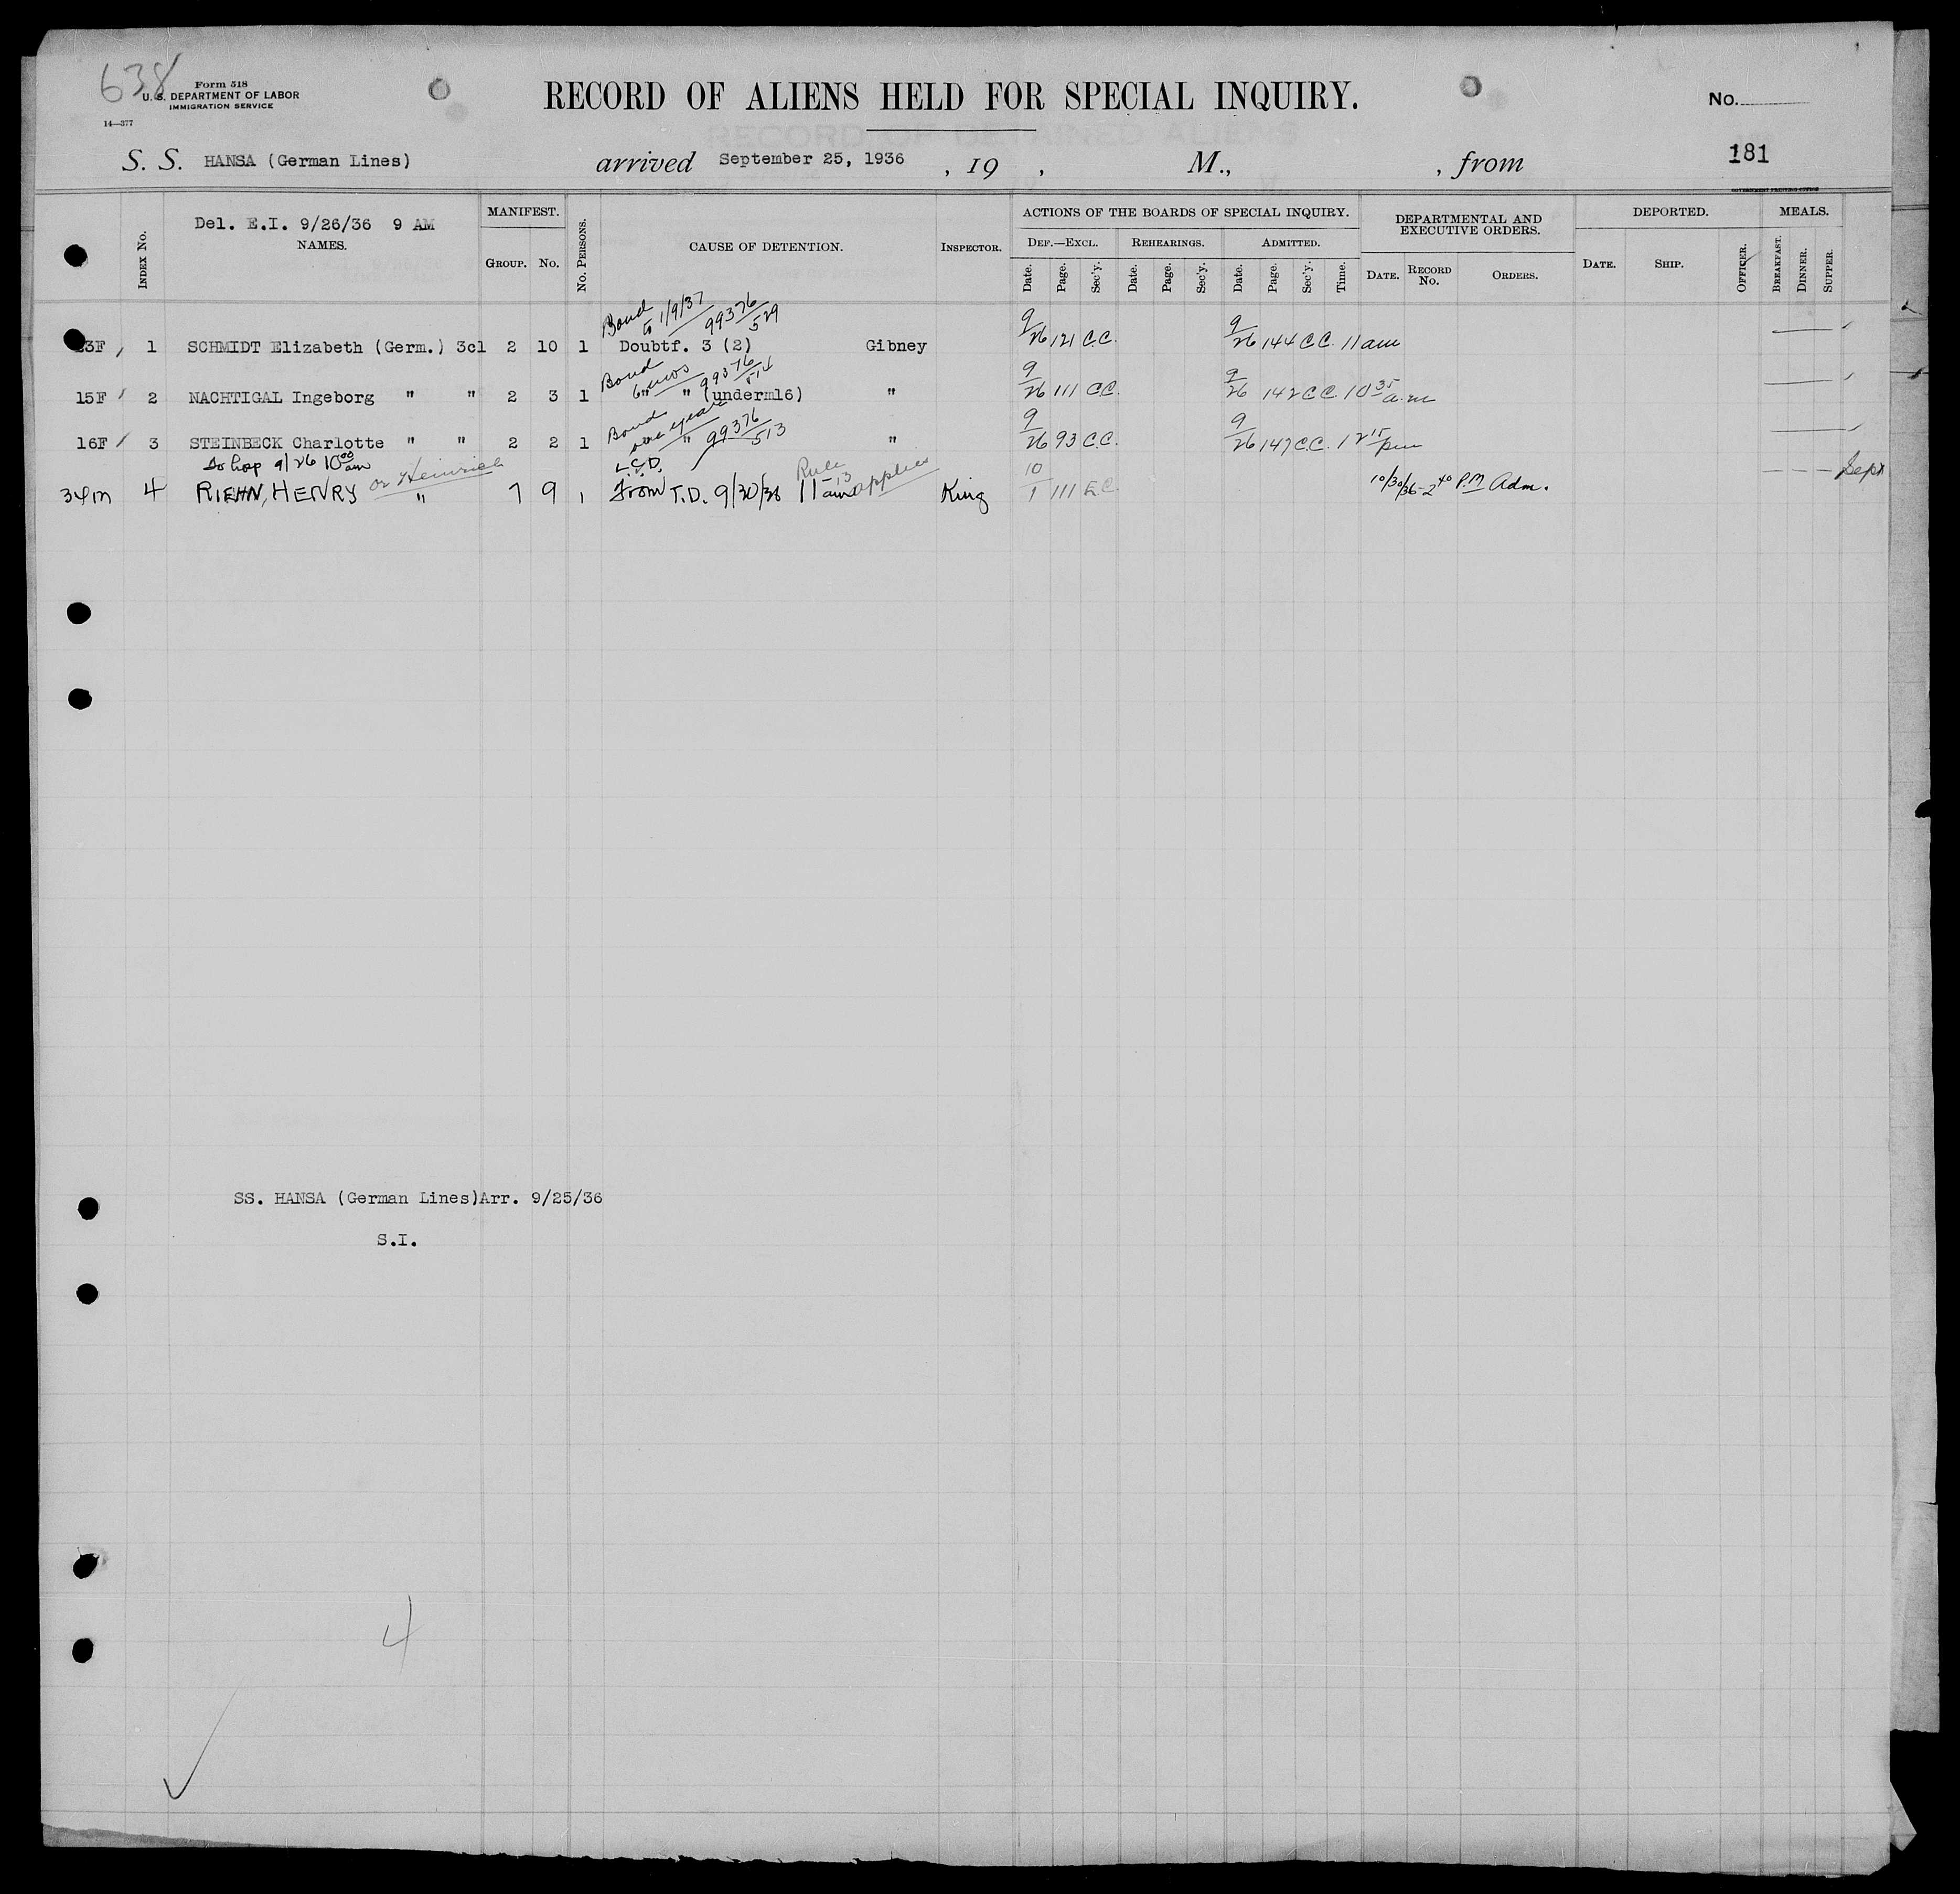 638
Form 518
U. S. DEPARTMENT OF LABOR
IMMIGRATION SERVICE
14—377
RECORD OF ALIENS HELD FOR SPECIAL INQUIRY.
No.
181
S. S. HANSA (German Lines) arrived September 25, 1936 , 19 , M., , from
GOVERNMENT PRINTING OFFICE
Del. E.I. 9/26/36 9 AM
INDEX NO. NAMES. MANIFEST. GROUP. NO. NO. PERSONS. CAUSE OF DETENTION. INSPECTOR. ACTIONS OF THE BOARDS OF SPECIAL INQUIRY. DEF.—EXCL. Date. Page. Sec'y. REHEARINGS. Date. Page. Sec'y. ADMITTED. Date. Page. Sec'y. Time. DEPARTMENTAL AND EXECUTIVE ORDERS. DATE. RECORD NO. ORDERS. DEPORTED. DATE. SHIP. OFFICER. MEALS. BREAKFAST. DINNER. SUPPER.
Bond to 1/9/37 99376/529
23F 1 SCHMIDT Elizabeth (Germ.) 3cl 2 10 1 Doubtf. 3 (2) Gibney 9/26 121 C.C. 9/26 144 C.C. 11 am
Bond 6 mos 99376/514
15F 2 NACHTIGAL Ingeborg " " 2 3 1 " " (underm16) " 9/26 111 C.C. 9/26 142 C.C. 10 35 a.m
Bond one year 99376/513
16F 3 STEINBECK Charlotte " " 2 2 1 " " 9/26 93 C.C. 9/26 147 C.C. 12 15 pm
To Hosp 9/26 10 00 am L.C.D. Rule 13 applies
34m 4 RIEHN, HENRY or Heinrich " 7 9 1 From T.D. 9/30/36 11 am King 10/1 111 E.C. 10/30/36 - 2 40 P.M Adm.
SS. HANSA (German Lines)Arr. 9/25/36
S.I.
4